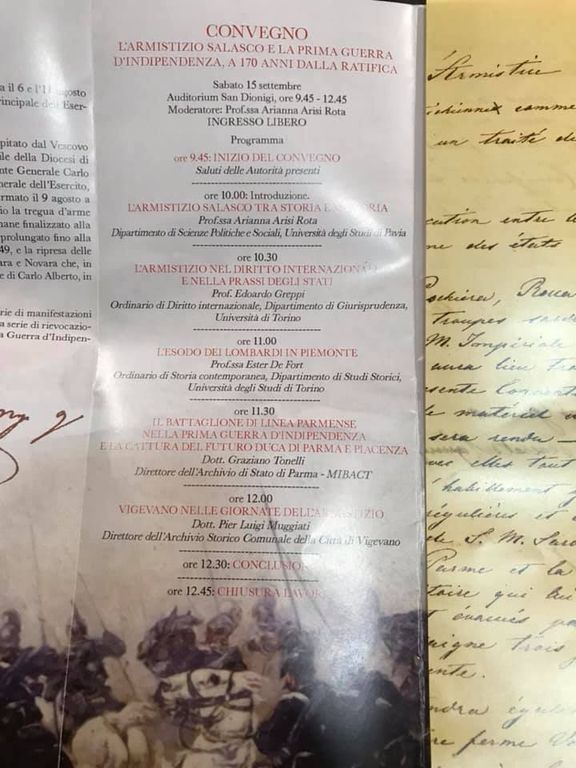 a il 6 e l'11 agosto
rincipale dell'Eser-
pitato dal Vescovo
ile della Diocesi di
nte Generale Carlo
nerale dell'Esercito,
rmato il 9 agosto a
io la tregua d'arme
mane finalizzato alla
prolungato fino alla
49, e la ripresa delle
ara e Novara che, in
e di Carlo Alberto, in
erie di manifestazioni
a serie di rievocazio-
a Guerra d'Indipen-
CONVEGNO
L'ARMISTIZIO SALASCO E LA PRIMA GUERRA
D'INDIPENDENZA, A 170 ANNI DALLA RATIFICA
Sabato 15 settembre
Auditorium San Dionigi, ore 9.45 - 12.45
Moderatore: Prof.ssa Arianna Arisi Rota
INGRESSO LIBERO
Programma
ore 9.45: INIZIO DEL CONVEGNO
Saluti delle Autorità presenti
ore 10.00: Introduzione.
L'ARMISTIZIO SALASCO TRA STORIA E
Prof.ssa Arianna Arisi Rota
Dipartimento di Scienze Politiche e Sociali, Università degli Studi di Pavia
ore 10.30
L'ARMISTIZIO NEL DIRITTO INTERNAZIONALE
E NELLA PRASSI DEGLI STATI
Prof. Edoardo Greppi
Ordinario di Diritto internazionale, Dipartimento di Giurisprudenza,
Università di Torino
ore 11.00
L'ESODO DEI LOMBARDI IN PIEMONTE
Prof.ssa Ester De Fort
Ordinario di Storia contemporanea, Dipartimento di Studi Storici,
Università degli Studi di Torino
ore 11.30
IL BATTAGLIONE DI LINEA PARMENSE
NELLA PRIMA GUERRA D'INDIPENDENZA
E LA CATTURA DEL FUTURO DUCA DI PARMA E PIACENZA
Dott. Graziano Tonelli
Direttore dell'Archivio di Stato di Parma - MIBACT
ore 12.00
VIGEVANO NELLE GIORNATE DELL'ARMISTIZIO
Dott. Pier Luigi Muggiati
Direttore dell'Archivio Storico Comunale della Città di Vigevano
ore 12.30: CONCLUSIONI
ore 12.45: CHIUSURA LAVORI
Armistice
comme
un traité de
cution entre le
me des états
Peschiera, Rocca
troupes sardes
M. Impériale
aura lieu tr
sente Convent
le matériel
sera rendu
elles tout
habillement
régulières et
de S. M. Sard
Parme et la
toire qui
évacués pa
trois
ente.
endra égale
re ferme